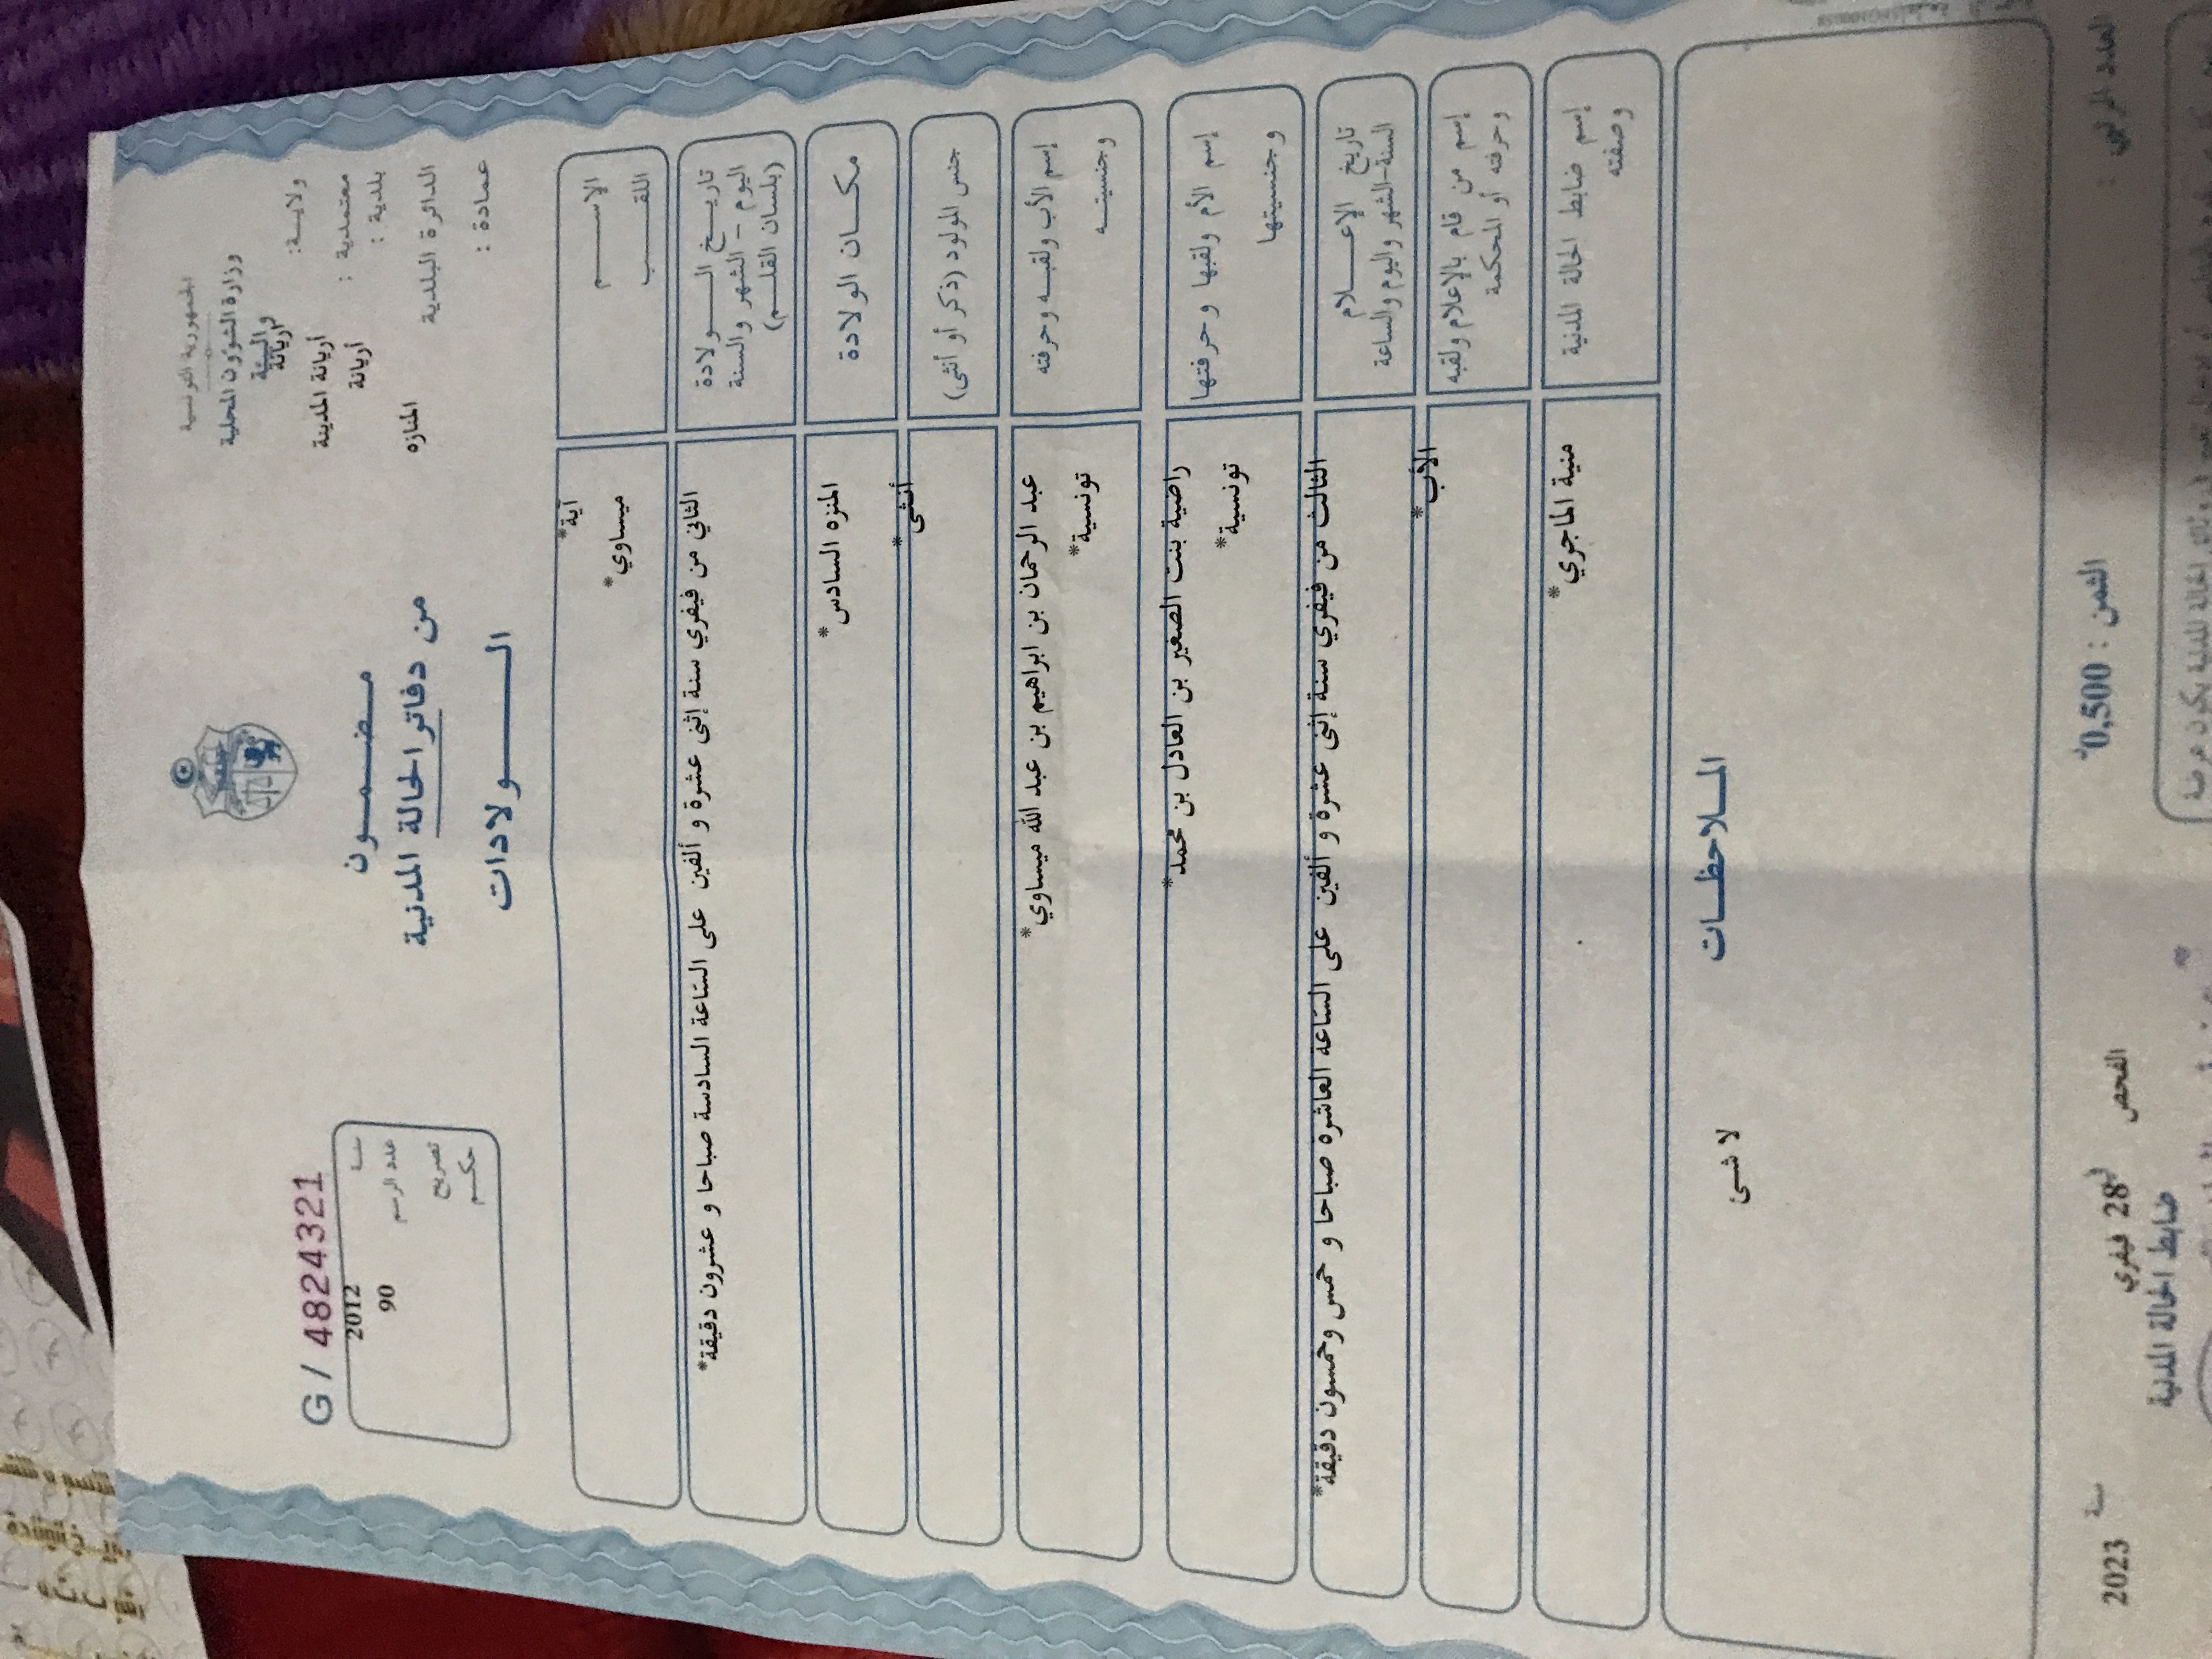 الجمهورية التونسية
وزارة الشؤون المحلية
والبيئة
ولايـــة: أريانة
معتمدية : أريانة المدينة
بلدية : أريانة
الدائرة البلدية المنازه
عمادة :
مـضـمـــون
من دفاتر الحالة المدنية
الــــولادات
G / 4824321
سنة 2012
عدد الرسم 90
تصريح
حكم
الإســـــم آية*
اللقـــــب ميساوي*
تاريـــخ الــــولادة
اليوم – الشهر والسنة
(بلسان القلـــم)
الثاني من فيفري سنة إثنى عشرة و ألفين على الساعة السادسة صباحا و عشرون دقيقة*
مكـــان الولادة المنزه السادس*
جنس المولود (ذكر أو أنثى) أنثى*
إسم الأب ولقبـــه وحرفته عبد الرحمان بن ابراهيم بن عبد الله ميساوي*
وجنسيتـــه تونسية*
إسم الأم ولقبها وحرفتها راضية بنت الصغير بن العادل بن محمد*
وجنسيتها تونسية*
تاريخ الإعـــلام
السنة-الشهر واليوم والساعة
الثالث من فيفري سنة إثنى عشرة و ألفين على الساعة العاشرة صباحا و خمس وخمسون دقيقة*
إسم من قام بالإعلام ولقبه الأب*
وحرفته أو المحكمة
إسم ضابط الحالة المدنية منية الماجري*
وصفته
المـلاحظـــات
لا شئ
العدد الرتبي :
الثمن : 0,500د
الفحص في 28 فيفري سنة 2023
ضابط الحالة المدنية